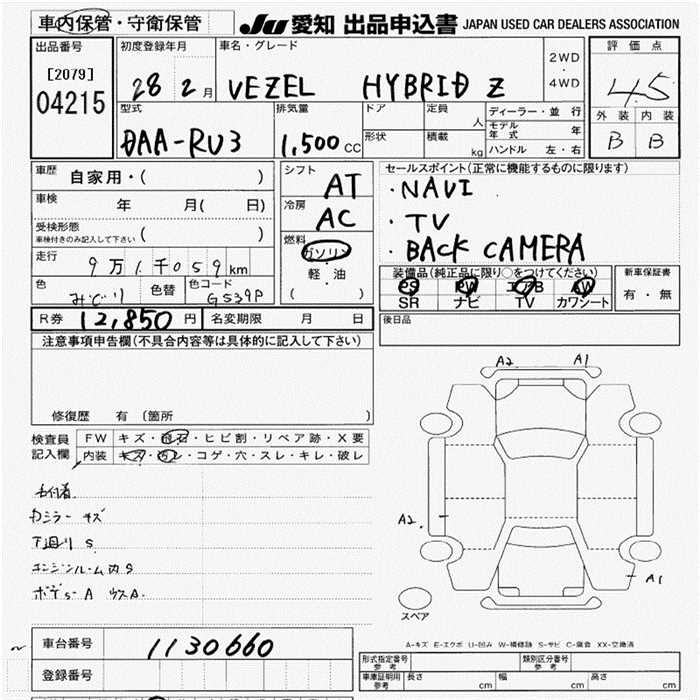 車内保管・守衛保管
JU 愛知 出品申込書 JAPAN USED CAR DEALERS ASSOCIATION
出品番号
[2079]
04215
初度登録年月
28 2月
車名・グレード
VEZEL HYBRID Z
2WD
・
4WD
評価点
4.5
外装 内装
B B
型式
DAA-RU3
排気量
1,500 CC
ドア
形状
定員
人
積載
kg
ディーラー・並行
モデル年式 年
ハンドル 左・右
車歴 自家用・( )
車検 年 月( 日)
受検形態
車検付きのみ記入して下さい ( )
走行 9万1千059km
色 みどり 色替 色コード G539P
シフト AT
冷房 AC
燃料
ガソリン
・
軽油
( )
セールスポイント(正常に機能するものに限ります)
・NAVI
・TV
・BACK CAMERA
装備品(純正品に限り○をつけてください)
PS PW エアB AW
SR ナビ TV カワシート
新車保証書
有・無
R券 12,850円 名変期限 月 日
後日品
注意事項申告欄(不具合内容等は具体的に記入して下さい)
修復歴 有 (箇所 )
検査員
記入欄
FW キズ・飛石・ヒビ割・リペア跡・X要
内装 キズ・汚レ・コゲ・穴・スレ・キレ・破レ
カミラー キズ
下廻り S
エンジンルーム内 S
ボデー A ウスA.
A2 A1
A2.
A1
スペア
A-キズ E-エクボ U-凹み W-補修跡 S-サビ C-腐食 XX-交換済
車台番号 1130660
登録番号
形式指定番号
参考
類別区分番号
参考
車庫証明用
参考
長さ cm 幅 cm 高さ cm